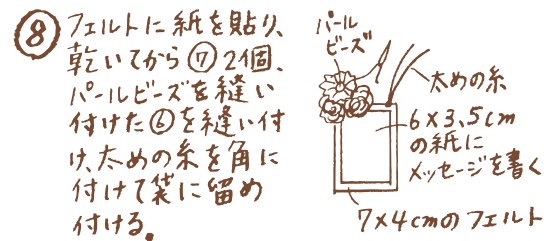 ⑧
フェルトに紙を貼り、
乾いてから⑦2個、
パールビーズを縫い
付けた⑥を縫い付
け、太めの糸を角に
付けて袋に留め
付ける。
パール
ビーズ
太めの糸
6×3.5cm
の紙に
メッセージを書く
7×4cmのフェルト